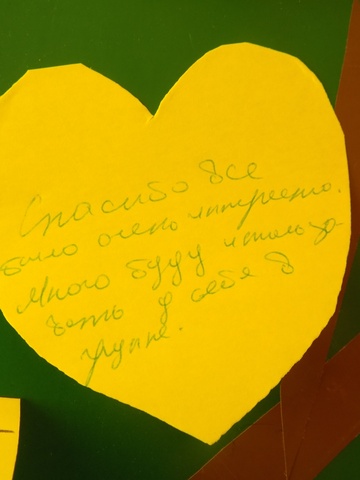 Спасибо все
было очень интересно.
Много буду использо
вать у себя в
группе.